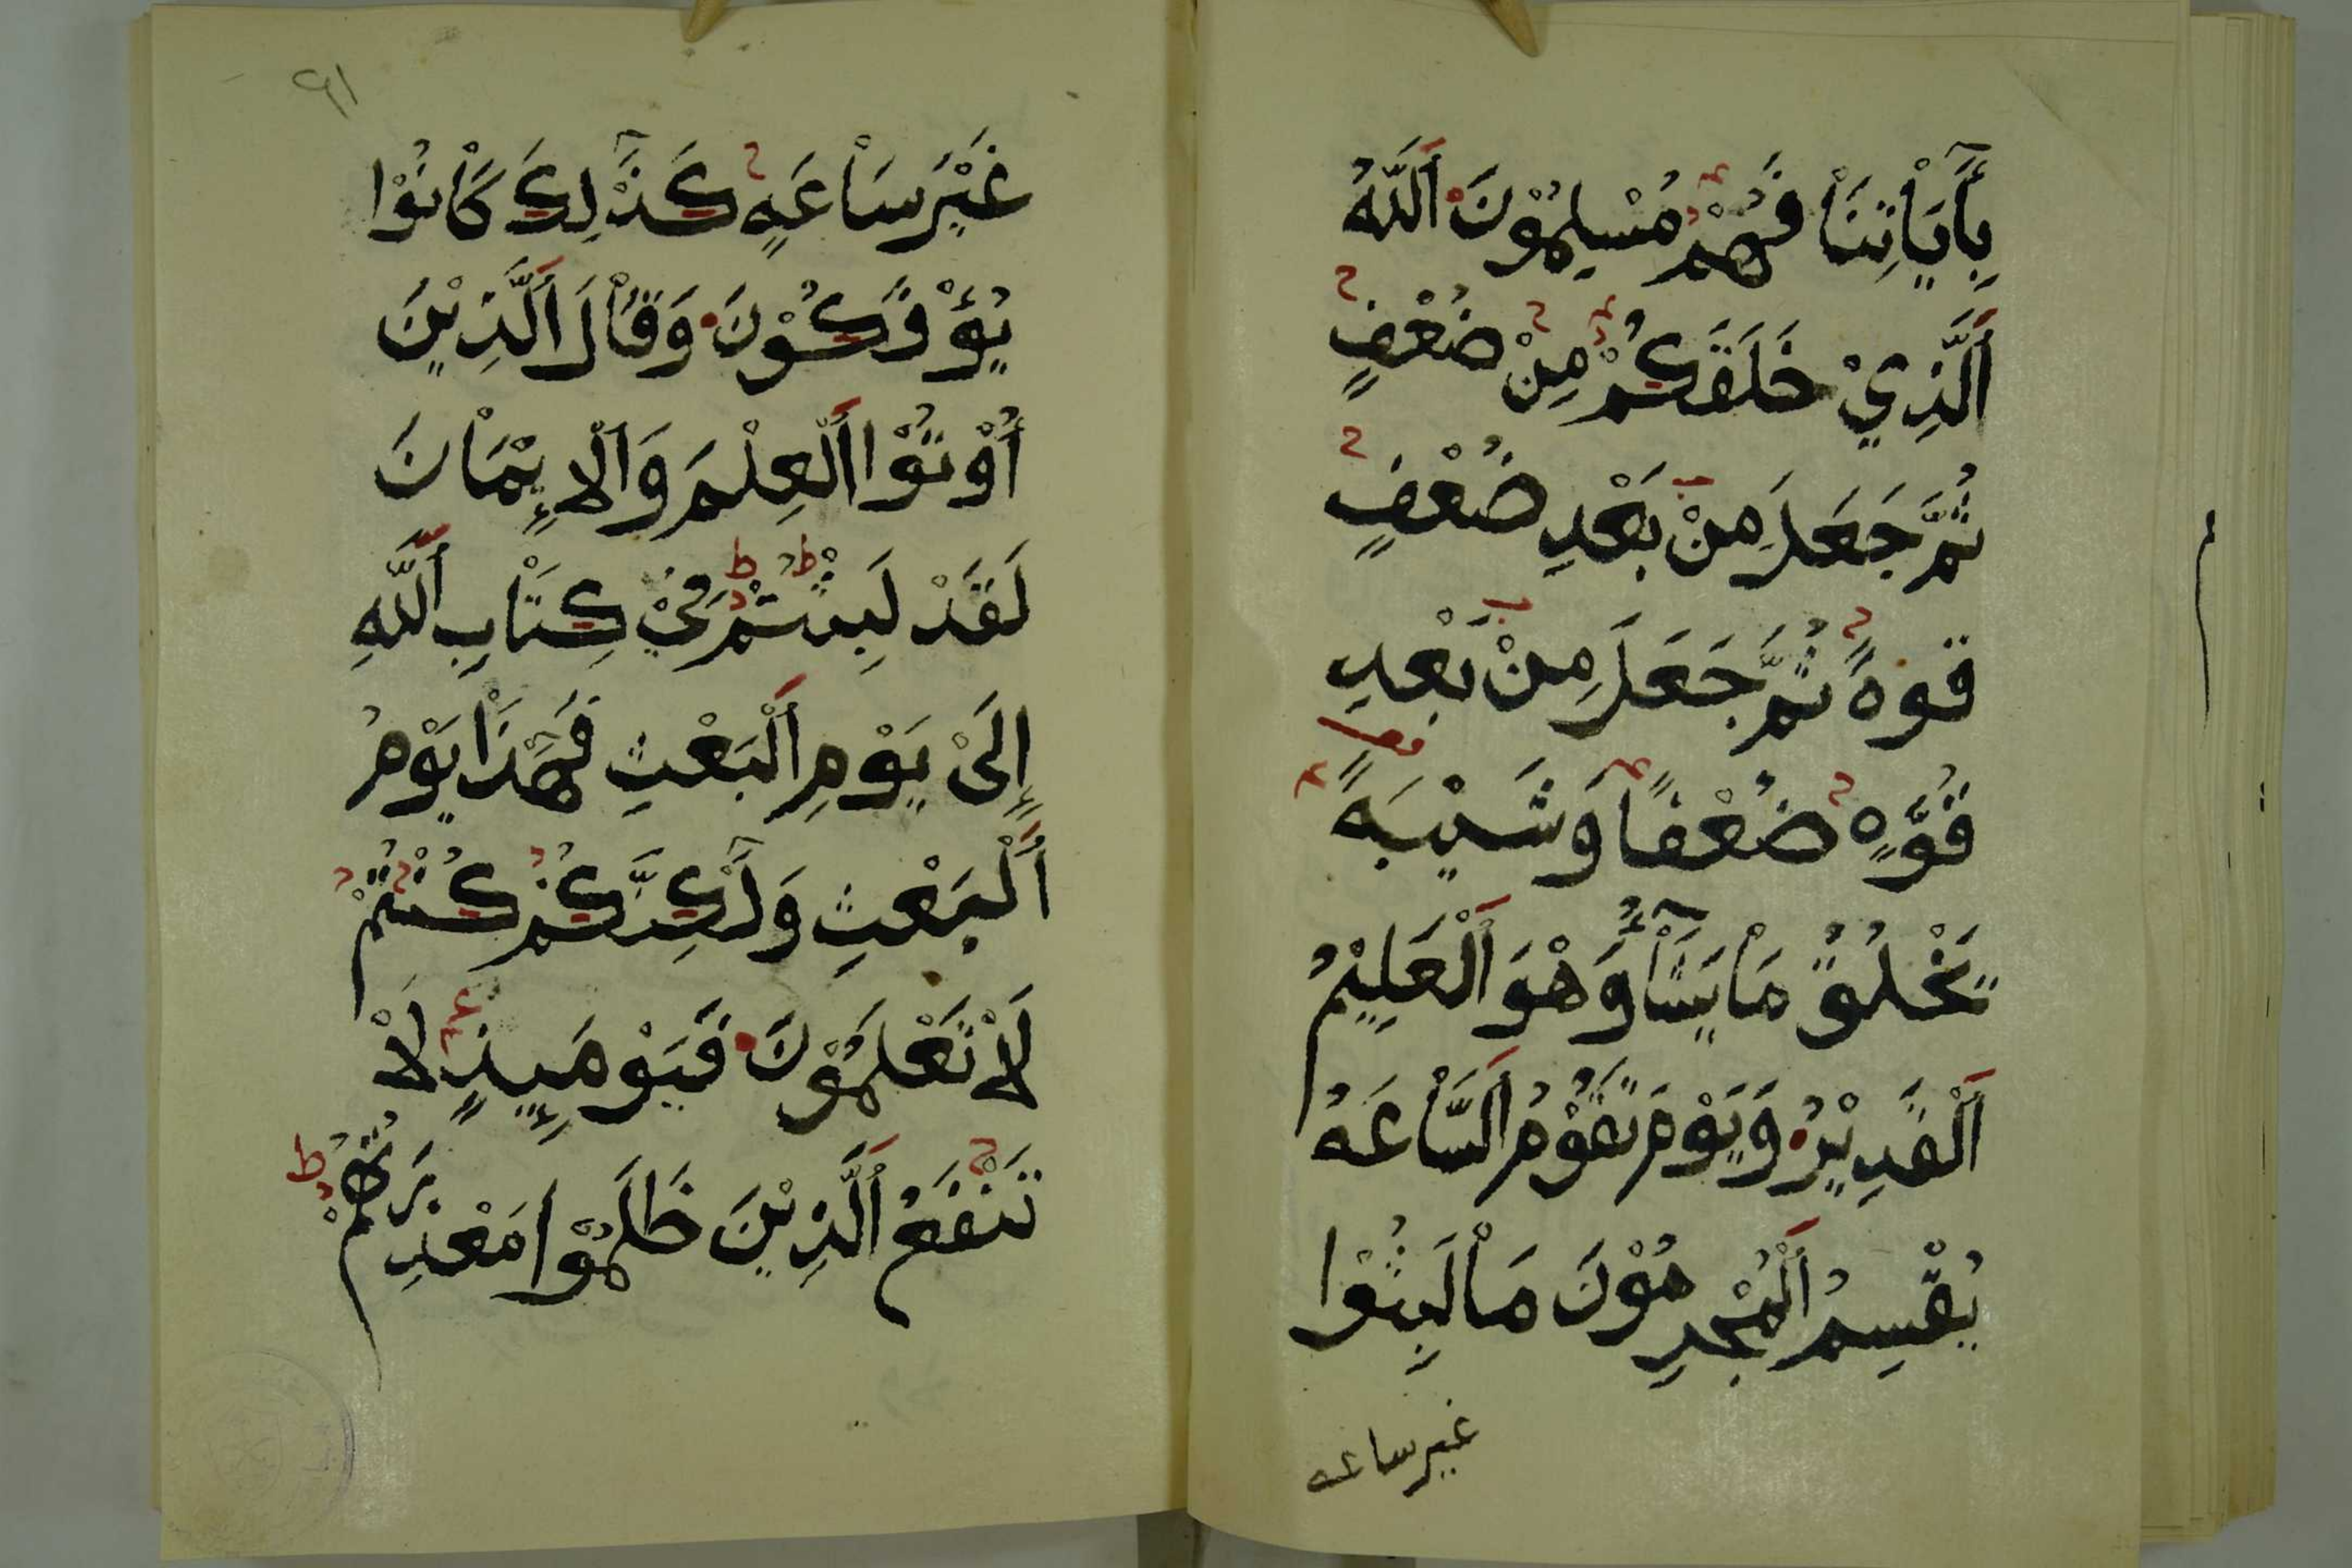 بِأٓيَاتِنَا فَهُمْ مُسْلِمُوْنَ اَللّٰهُ
اَلَّذِيْ خَلَقَكُمْ مِنْ ضُعْفٍ
ثُمَّ جَعَلَ مِنْ بَعْدِ ضُعْفٍ
قوةً ثُمَّ جَعَلَ مِنْ بَعْدِ
قُوَّةٍ ضُعْفًا وَشَيْبَةً
يَخْلُقُ مَا يَشَآءُ وَهْوَ اَلْعَلِيْمُ
اَلْقَدِيْرُ وَيَوْمَ تَقُوْمُ اَلسَّاعَةُ
يُقْسِمُ اَلْمُجْرِمُوْنَ مَا لَبِثُوْا
غير ساعه
٩١
غَيْرَ سَاعَةٍ كَذٰلِكَ كَانُوْا
يُؤْفَكُوْنَ وَقَالَ اَلَّذِيْنَ
أُوْتُوْا اَلْعِلْمَ وَاَلْإِيْمَانَ
لَقَدْ لَبِثْتُمْ فِيْ كِتَابِ اَللّٰهِ
إِلَىْ يَوْمِ اَلْبَعْثِ فَهٰذَا يَوْمُ
اَلْبَعْثِ وَلٰكِنَّكُمْ كُنْتُمْ
لَا تَعْلَمُوْنَ فَيَوْمَئِذٍ لَا
تَنْفَعُ اَلَّذِيْنَ ظَلَمُوْا مَعْذِرَتُهُمْ